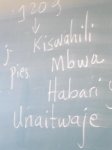 Kiswahili
pies Mbwa
Habari
Unaitwaje